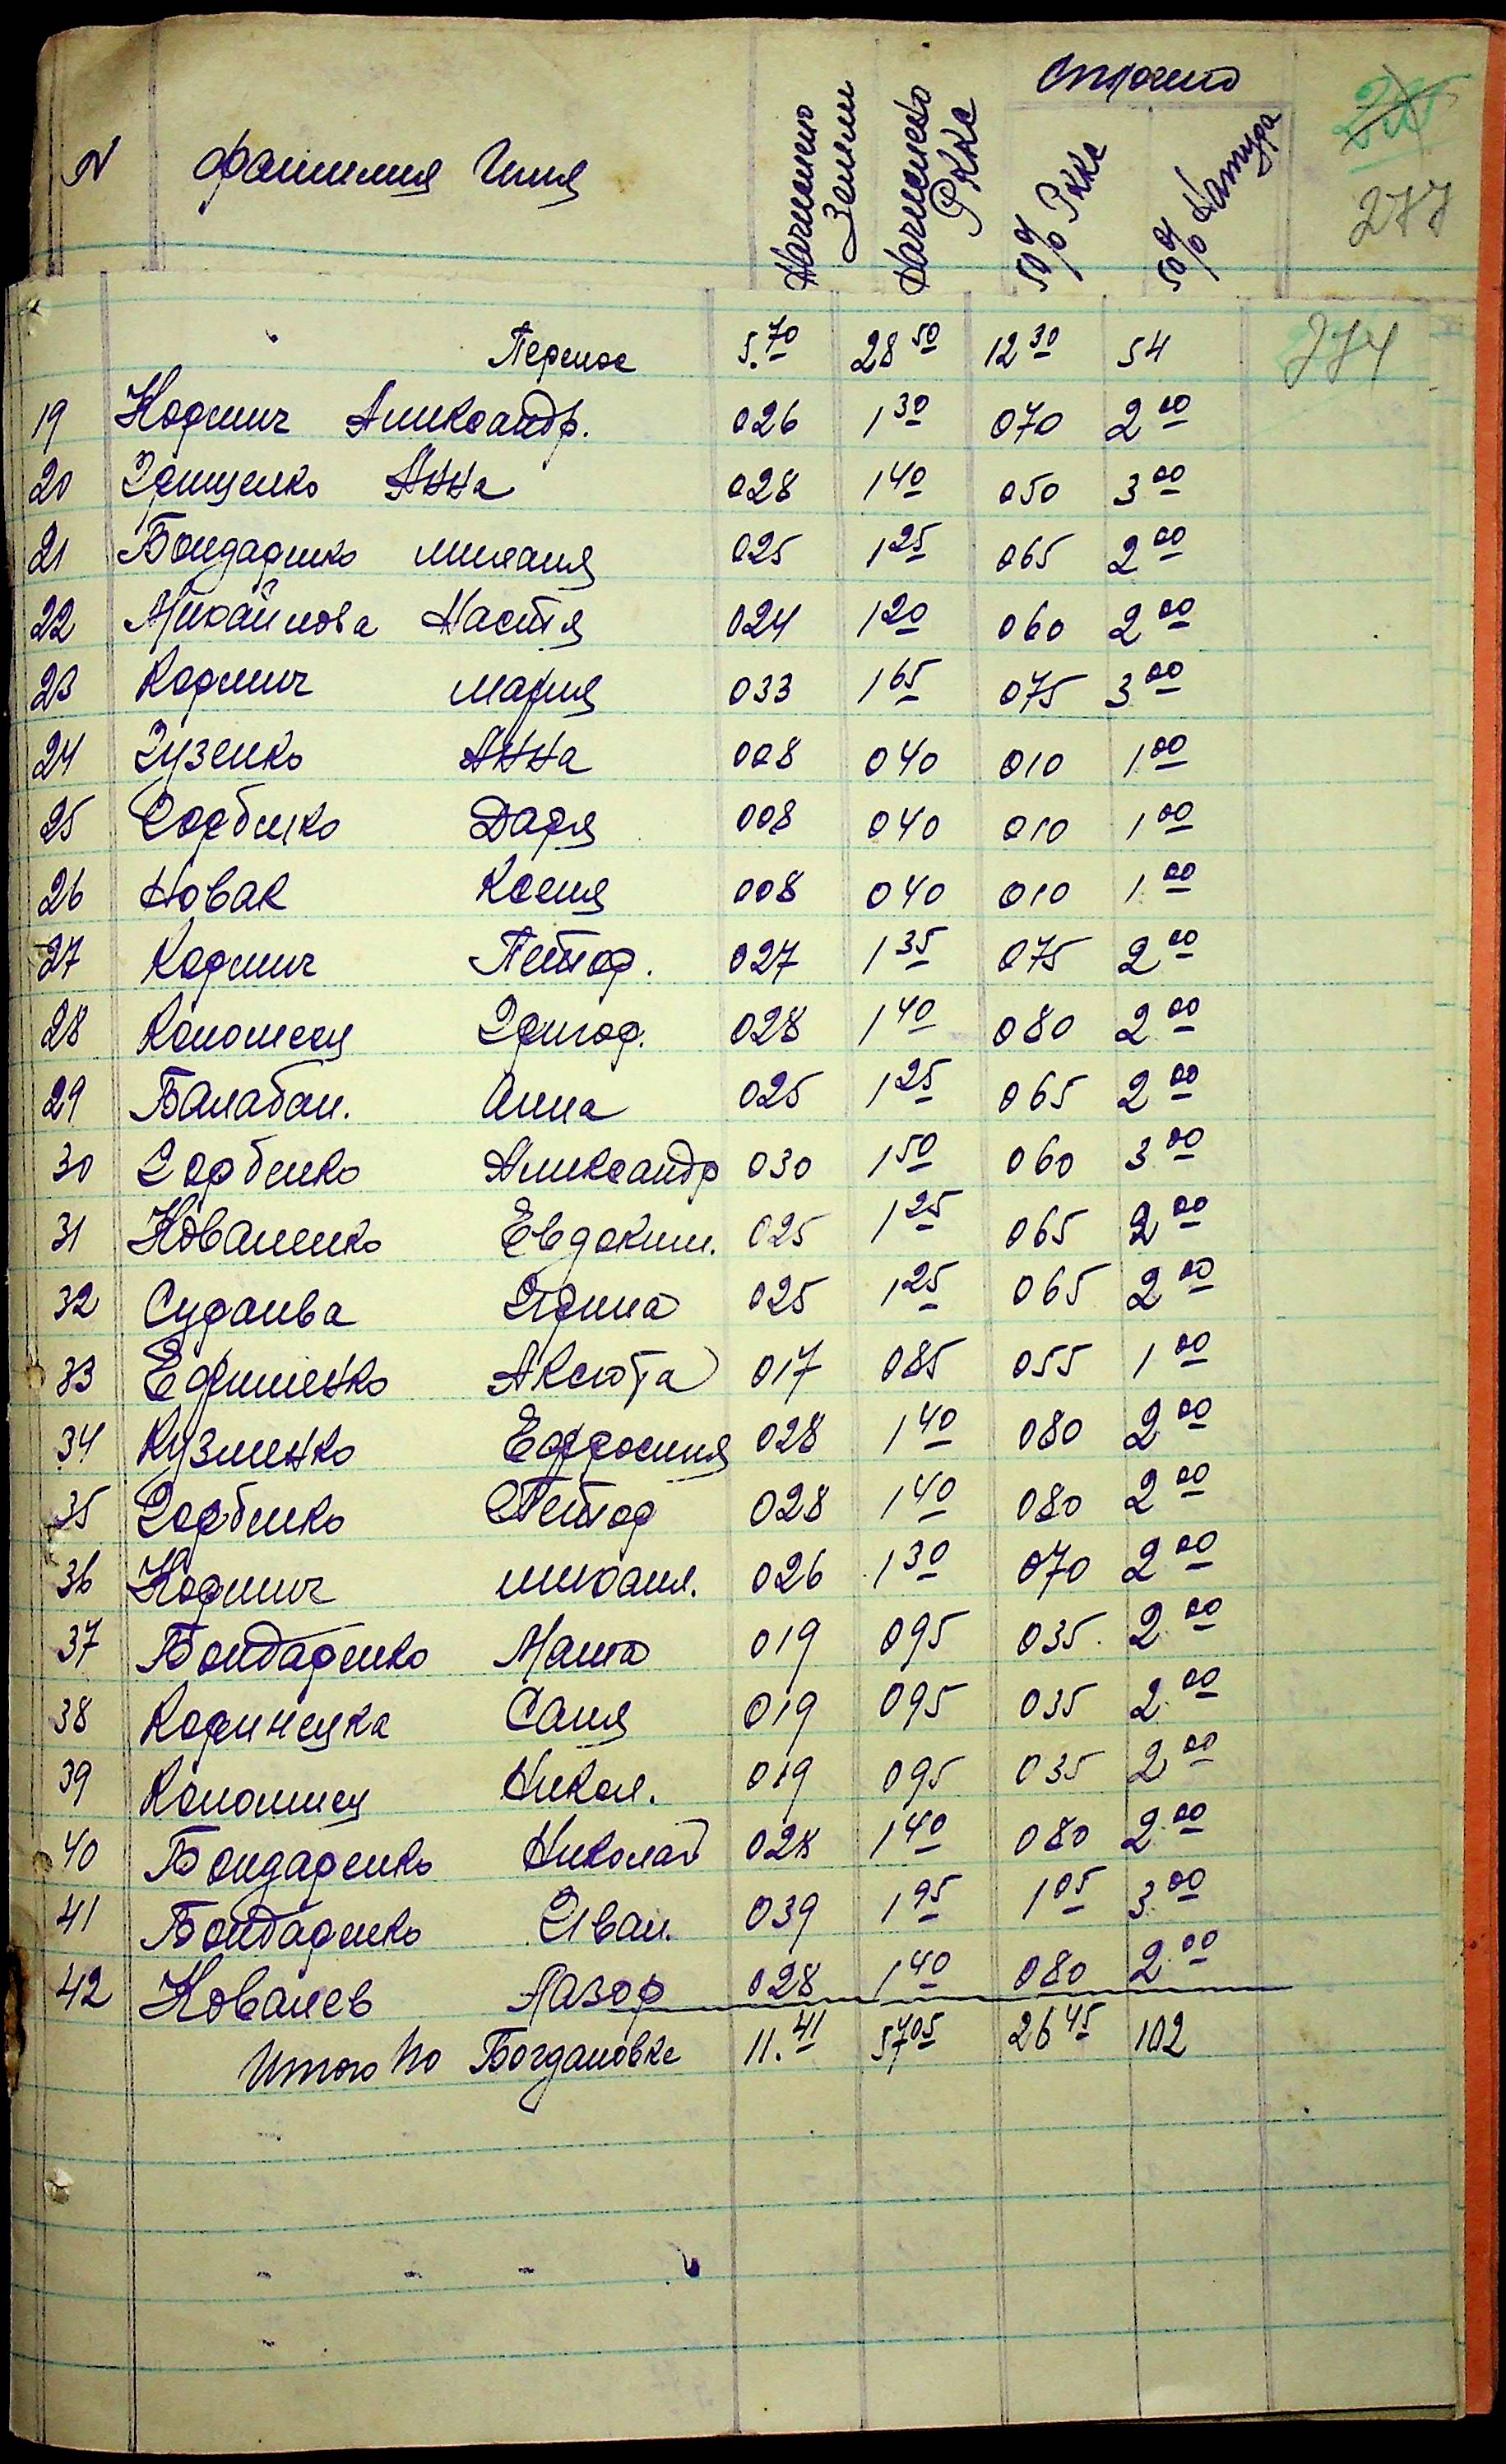 Отрочено
N Фамилия Имя Начислено Земли Начислено РККС 50% РККС 50% Натура
277
274
Перенос 5.70 28 50 12 30 54
19 Кормич Александр. 026 1 30 070 2 00
20 Грищенко Анна 028 1 40 050 3 00
21 Бондаренко Михаил 025 1 25 065 2 00
22 Михайлова Настя 024 1 20 060 2 00
23 Кормич Мария 033 1 65 075 3 00
24 Гузенко Анна 008 040 010 1 00
25 Горбенко Даря 008 040 010 1 00
26 Новак Ксеня 008 040 010 1 00
27 Кормич Петор. 027 1 35 075 2 00
28 Коломеец Григор. 028 1 40 080 2 00
29 Балабан. Анна 025 1 25 065 2 00
30 Горбенко Александр 030 1 50 060 3 00
31 Коваленко Евдоким. 025 1 25 065 2 00
32 Ирина 025 1 25 065 2 00
33 Ефименко Аксюта 017 085 055 1 00
34 Кузменко Ефросиня 028 1 40 080 2 00
35 Горбенко Петор 028 1 40 080 2 00
36 Кормич Михаил. 026 1 30 070 2 00
37 Бондаренко Маша 019 095 035 2 00
38 Саня 019 095 035 2 00
39 Коломиец Никол. 019 095 035 2 00
40 Бондаренко Николай 028 1 40 080 2 00
41 Бондаренко Иван. 039 1 95 1 05 3 00
42 Ковалев Лазор 028 1 40 080 2 00
Итого по Богдановке 11.41 57 05 26 45 102